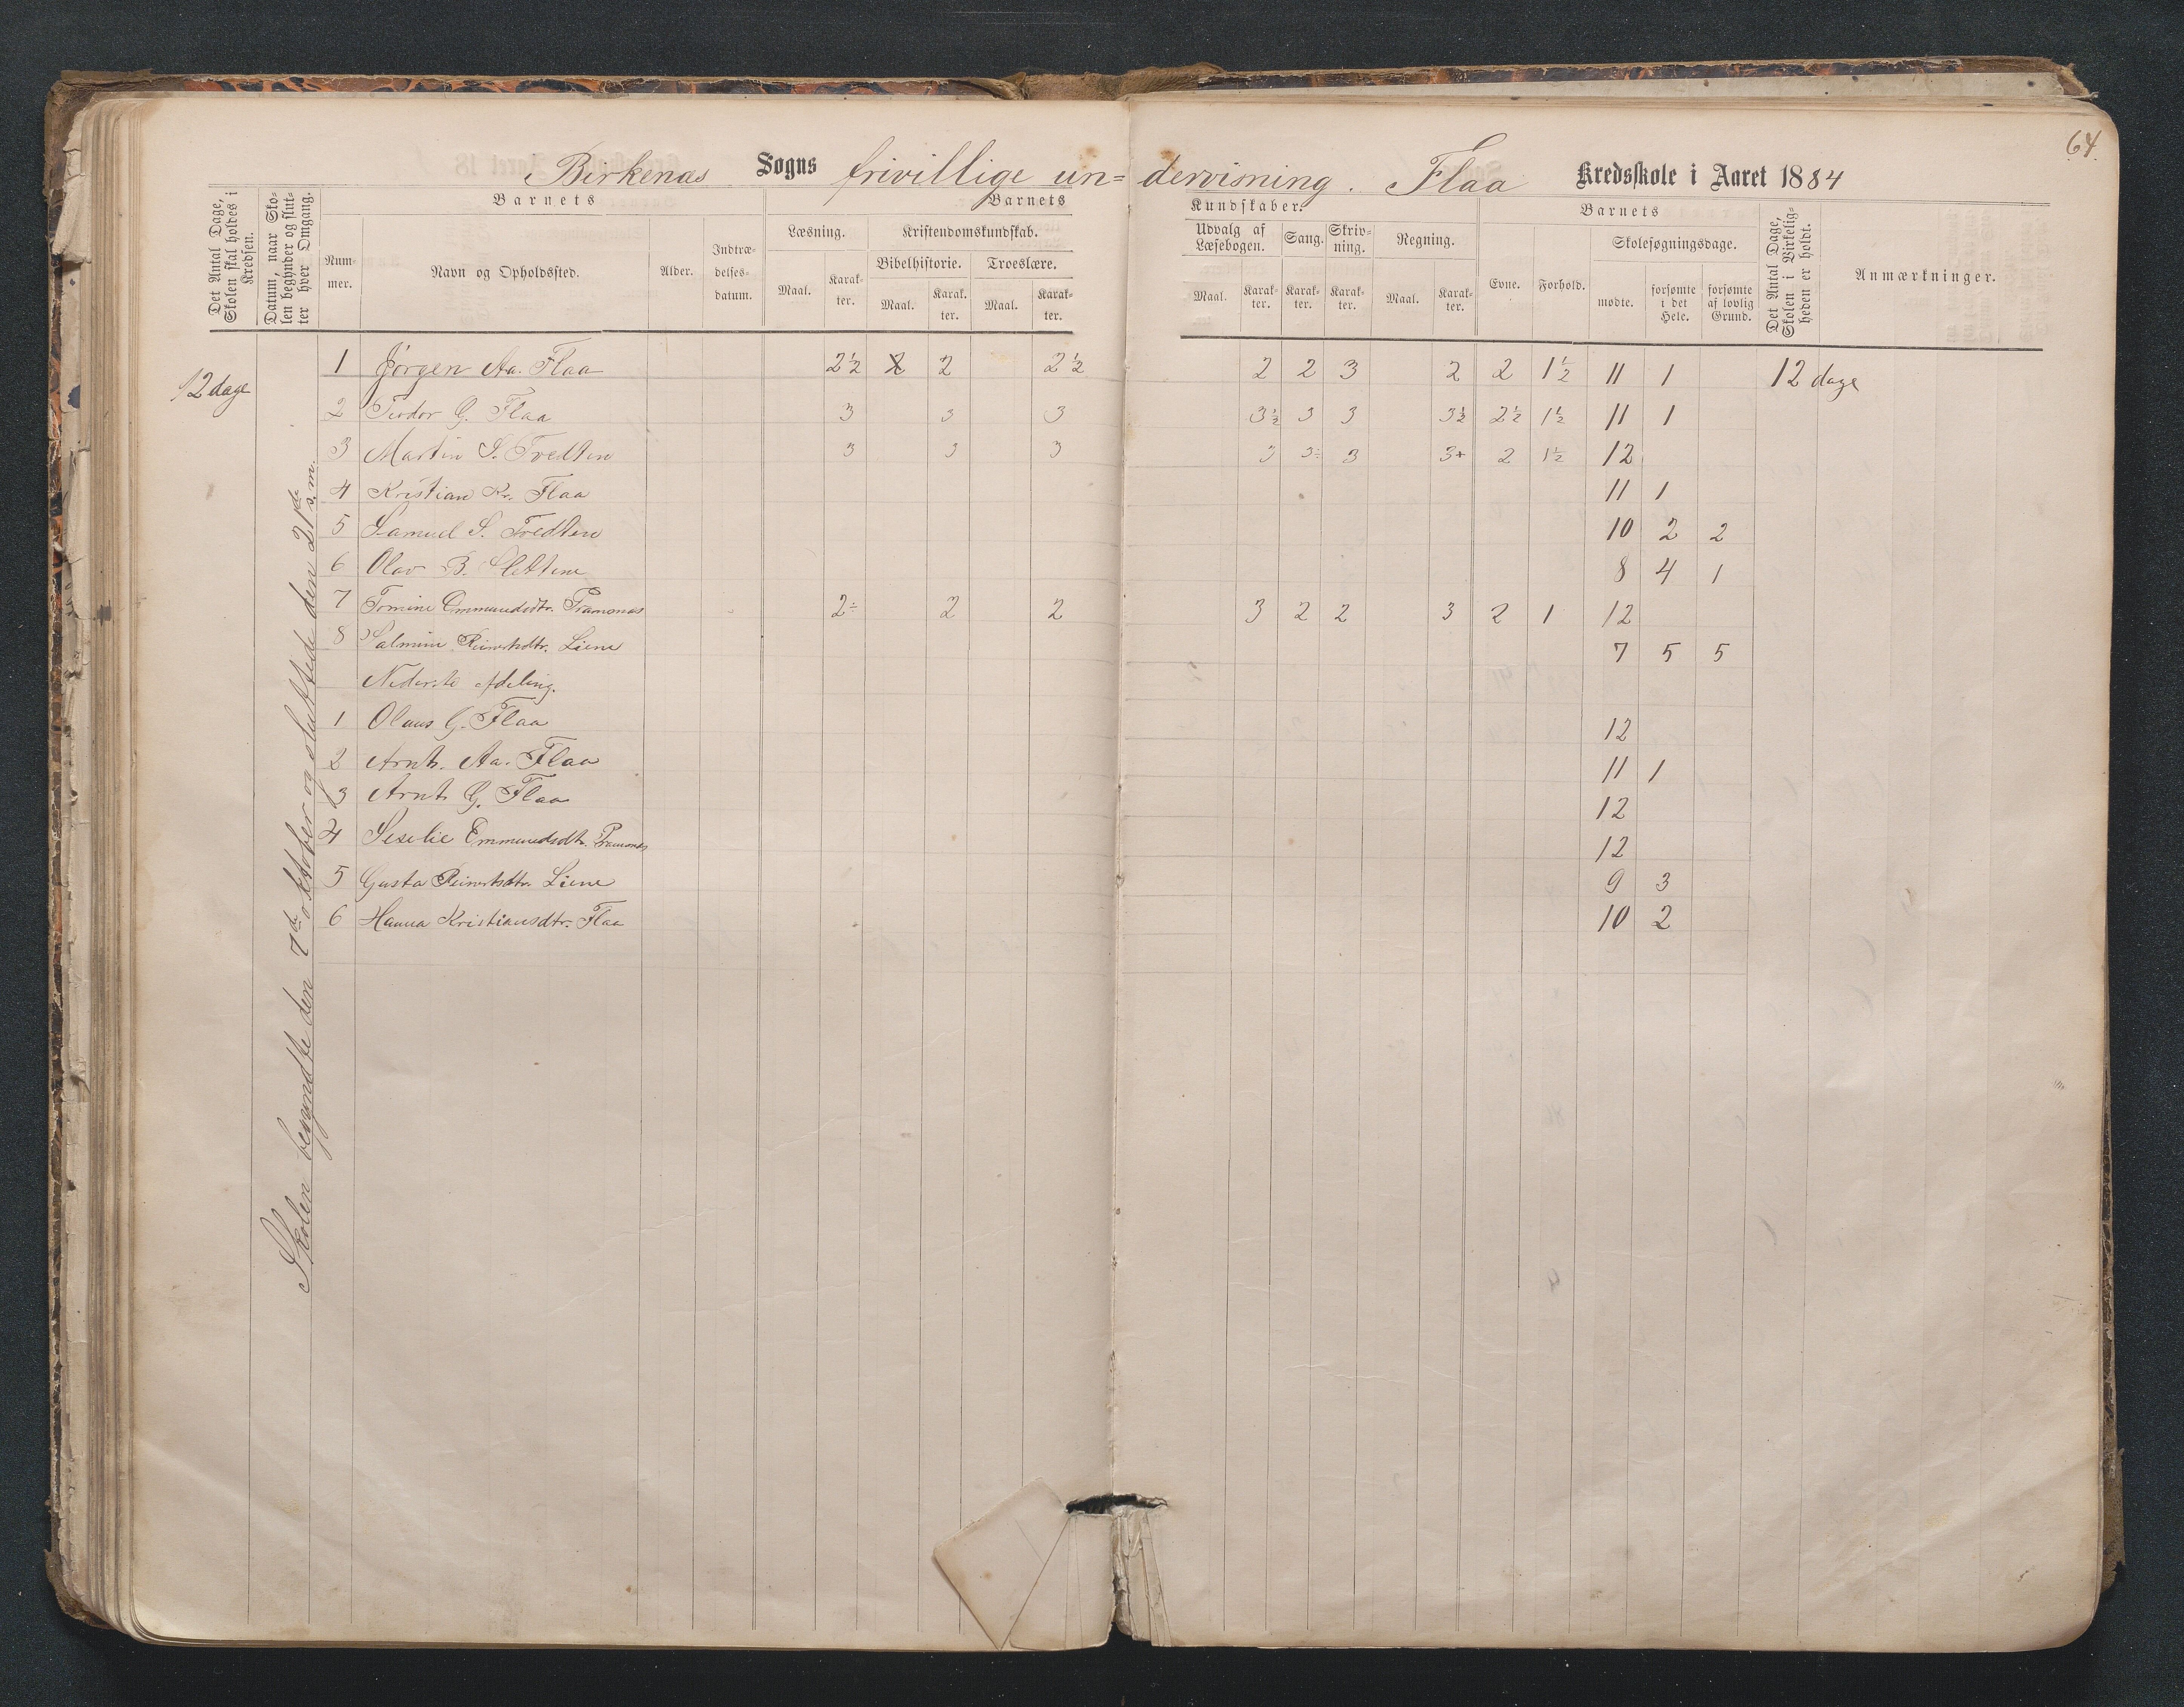 64.
Birkenæs Sogns frivillige un= dervisning. Flaa Kredsskole i Aaret 1884
Det Antal Dage, Skolen skal holdes i Kredsen.
Datum, naar Skolen begynder og slutter hver Omgang.
Barnets
Barnets
Kundskaber.
Barnets
Det Antal Dage, Skolen i Virkeligheden er holdt.
Anmærkninger.
Nummer.
Navn og Opholdssted.
Alder.
Indtrædelsesdatum.
Læsning.
Kristendomskundskab.
Udvalg af Læsebogen.
Sang.
Skrivning.
Regning.
Evne.
Forhold.
Skolesøgningsdage.
Bibelhistorie.
Troeslære.
Maal. Karakter. Maal. Karakter. Maal. Karakter. Maal. Karakter. Karakter. Karakter. Maal. Karakter.
mødte. forsømte i det Hele. forsømte af lovlig Grund.
12 dage
Skolen begyndte den 7de oktober og sluttede den 21de s.m.
1 Jørgen Aa. Flaa 2½ 2 2½ 2 2 3 2 2 1½ 11 1 12 dage
2 Teodor G. Flaa 3 3 3 3½ 3 3 3½ 2½ 1½ 11 1
3 Martin S. Tvedten 3 3 3 3 3÷ 3 3+ 2 1½ 12
4 Kristian Kr. Flaa 11 1
5 Samuel S. Tvedten 10 2 2
6 Olav B. Slettene 8 4 1
7 Tomine Emmundsdtr. Tramonæs 2÷ 2 2 3 2 2 3 2 1 12
8 Salmine Reiertsdtr. Liene 7 5 5
Nederste Afdeling.
1 Olaus G. Flaa 12
2 Arnt. Aa. Flaa 11 1
3 Arnt G. Flaa 12
4 Seselie Emmundsdtr. Tramonæs 12
5 Gusta Reiertsdtr. Liene 9 3
6 Hanna Kristiansdtr. Flaa 10 2